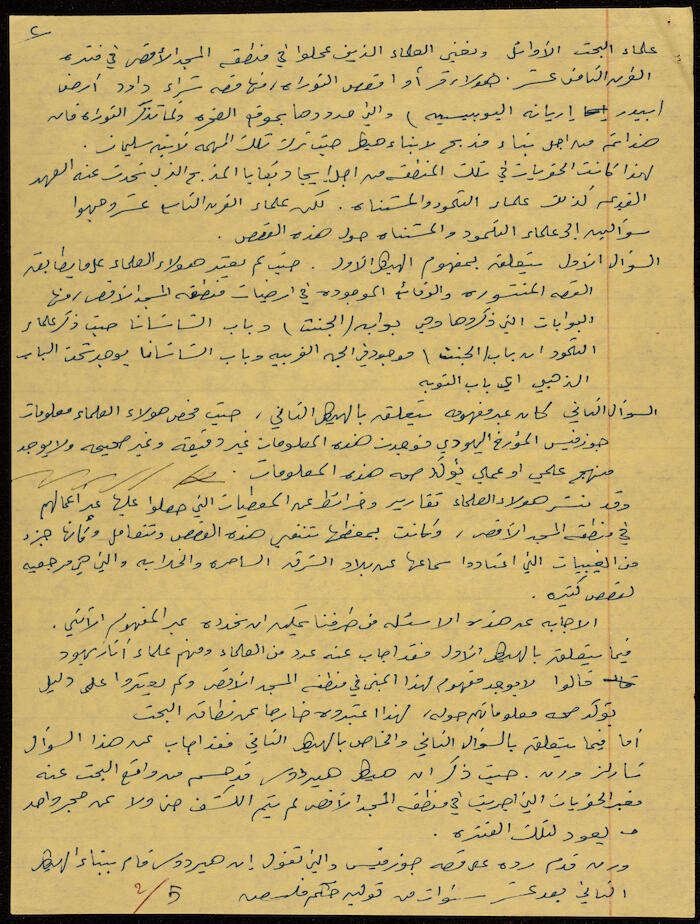 ٢
علماء البحث الأوائل ونعني العلماء الذين عملوا في منطقة المسجد الأقصى في فترة
القرن الثامن عشر. هؤلاء قرأوا قصص التوراة، منها قصة شراء داود أرض
(بيدر أريانة اليوبيسيه) والتي حددوها بموقع الصخرة ولما تذكر التوراة فان
هذا تم من اجل بناء مذبح لا بناء هيكل حيث ترك تلك المهمة لابنه سليمان.
لهذا كانت الحفريات في تلك المنطقة من اجل ايجاد بقايا المذبح الذي تحدث عنه العهد
القديم كذلك علماء التلمود والمشناه. لكن علماء القرن التاسع عشر وجهوا
سؤالين الى علماء التلمود والمشناه حول هذه القصص.
السؤال الأول يتعلق بمفهوم الهيكل الأول. حيث لم يعثر هؤلاء العلماء على ما يطابق
القصة المنشورة والوقائع الموجودة في ارضيات منطقة المسجد الأقصى، منها
البوابات التي ذكروها وهي بوابة (الجنث) وباب الشاشانا حيث ذكر علماء
التلمود ان باب (الجنث) موجود في الجهة الغربية وباب الشاشانا يوجد تحت الباب
الذهبي اي باب التوبه
السؤال الثاني كان عبر مفهومه يتعلق بالهيكل الثاني، حيث فحص هؤلاء العلماء معلومات
جوزفيس المؤرخ اليهودي فوجدت هذه المعلومات غير دقيقة وغير صحيحه ولا يوجد
منهج علمي او عملي يؤكد صحة هذه المعلومات.
وقد نشر هؤلاء العلماء تقارير وخرائط عن المعطيات التي حصلوا عليها عبر اعمالهم
في منطقة المسجد الأقصى، وكانت بمعظمها تنفي هذه القصص وتتعامل وكأنها جزء
من الغيبيات التي اعتادوا سماعها عن بلاد الشرق الساحره والخلابه والتي هي مرجعيه
لقصص كثيرة.
الاجابه عن هذه الاسئله من طرفنا يمكن ان نحدده عبر المفهوم الآتي.
فيما يتعلق بالهيكل الأول فقد اجاب عنه عدد من العلماء ومنهم علماء آثار يهود
قالوا لا يوجد مفهوم لهذا المبنى في منطقة المسجد الأقصى ولم يعثروا على دليل
يؤكد صحة معلوماتهم حوله، لهذا اعتبروه خارجا عن نطاق البحث
أما فيما يتعلق بالسؤال الثاني والخاص بالهيكل الثاني فقد اجاب عن هذا السؤال
تشارلز ورن. حيث ذكر ان هيكل هيردوس قد حسم من واقع البحث عنه
فعبر الحفريات التي اجريت في منطقة المسجد الأقصى لم يتم الكشف حتى ولا عن حجر واحد
يعود لتلك الفترة.
ورن قدم رده على قصة جوزفيس والتي تقول ان هيردوس قام ببناء الهيكل
الثاني بعد عشر سنوات من توليه حكم فلسطين
2/5